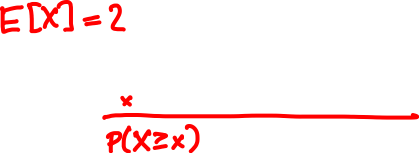 E[X] = 2
x
P(X≥x)